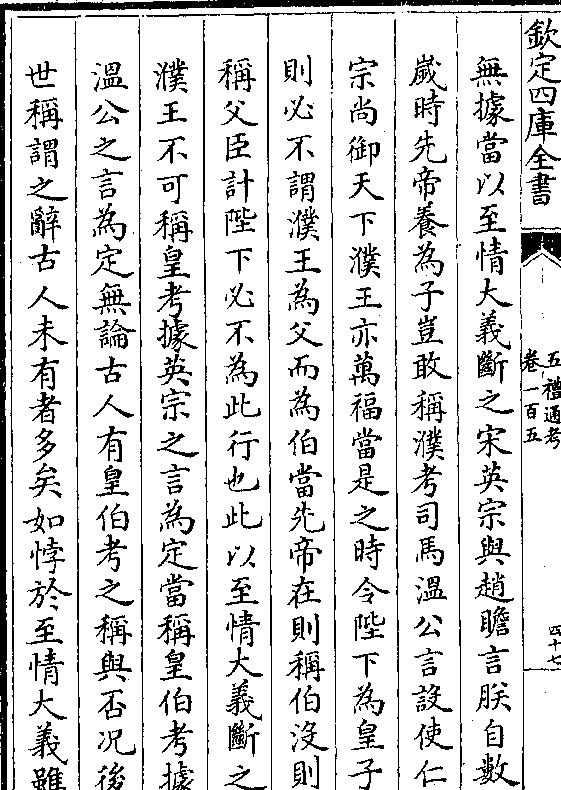 欽定四庫全書
五禮通考
卷一百五
四十七
無據當以至情大義斷之宋英宗與趙瞻言朕自數
歲時先帝養為子豈敢稱濮考司馬溫公言設使仁
宗尚御天下濮王亦萬福當是之時令陛下為皇子
則必不謂濮王為父而為伯當先帝在則稱伯沒則
稱父臣計陛下必不為此行也此以至情大義斷之
濮王不可稱皇考據英宗之言為定當稱皇伯考據
溫公之言為定無論古人有皇伯考之稱與否况後
世稱謂之辭古人未有者多矣如悖於至情大義雖